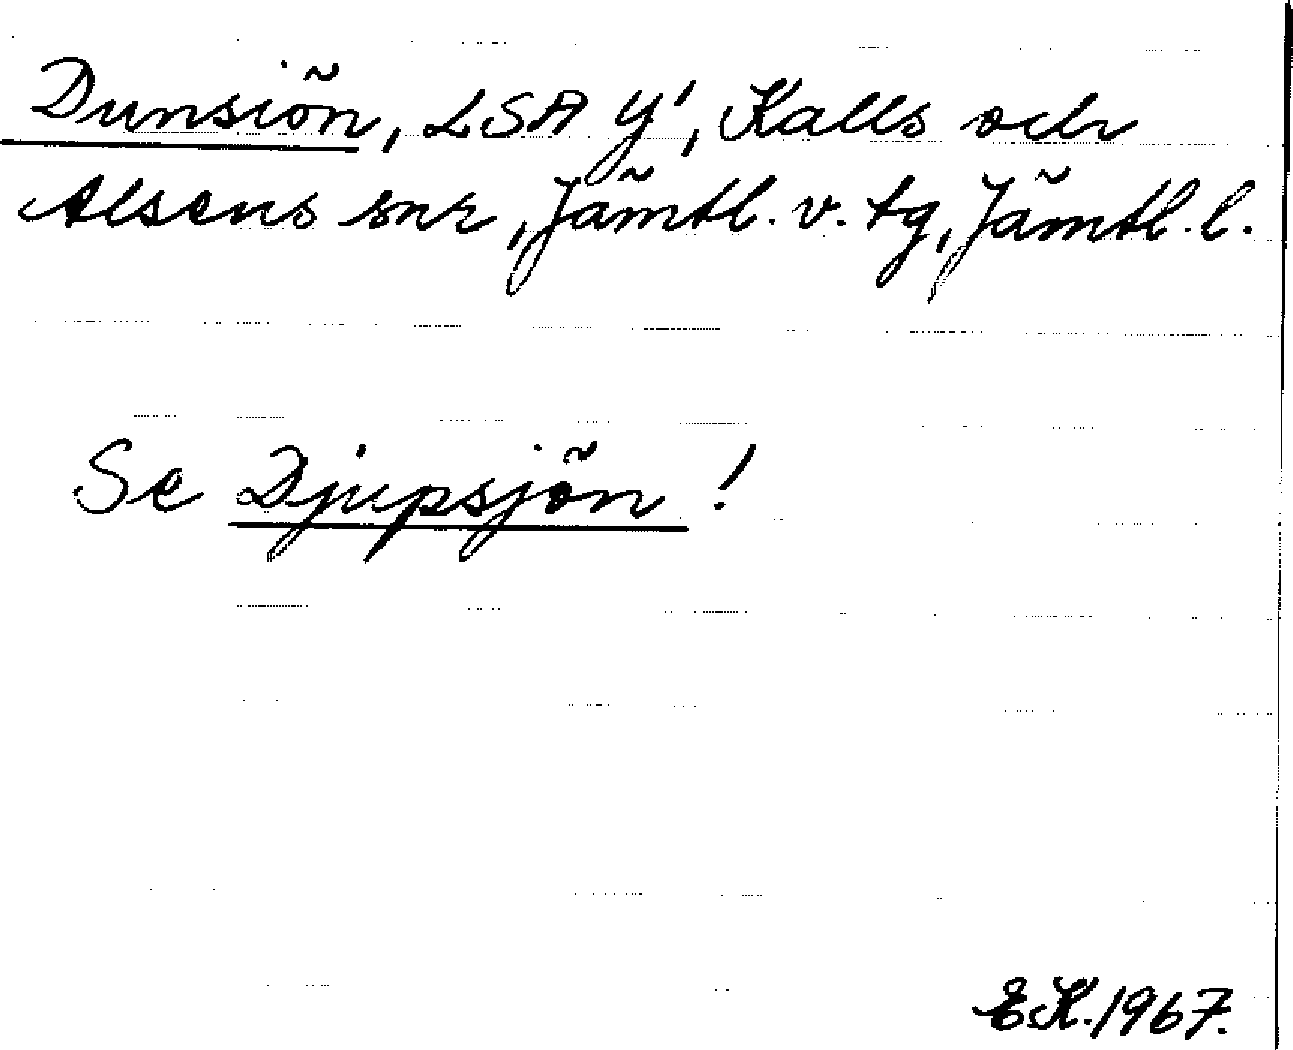 Dunsiön, LSA Y¹, Kalls och
Alsens snr, Jämtl. v. tg, Jämtl. l.
Se Djupsjön!
E.K. 1967.